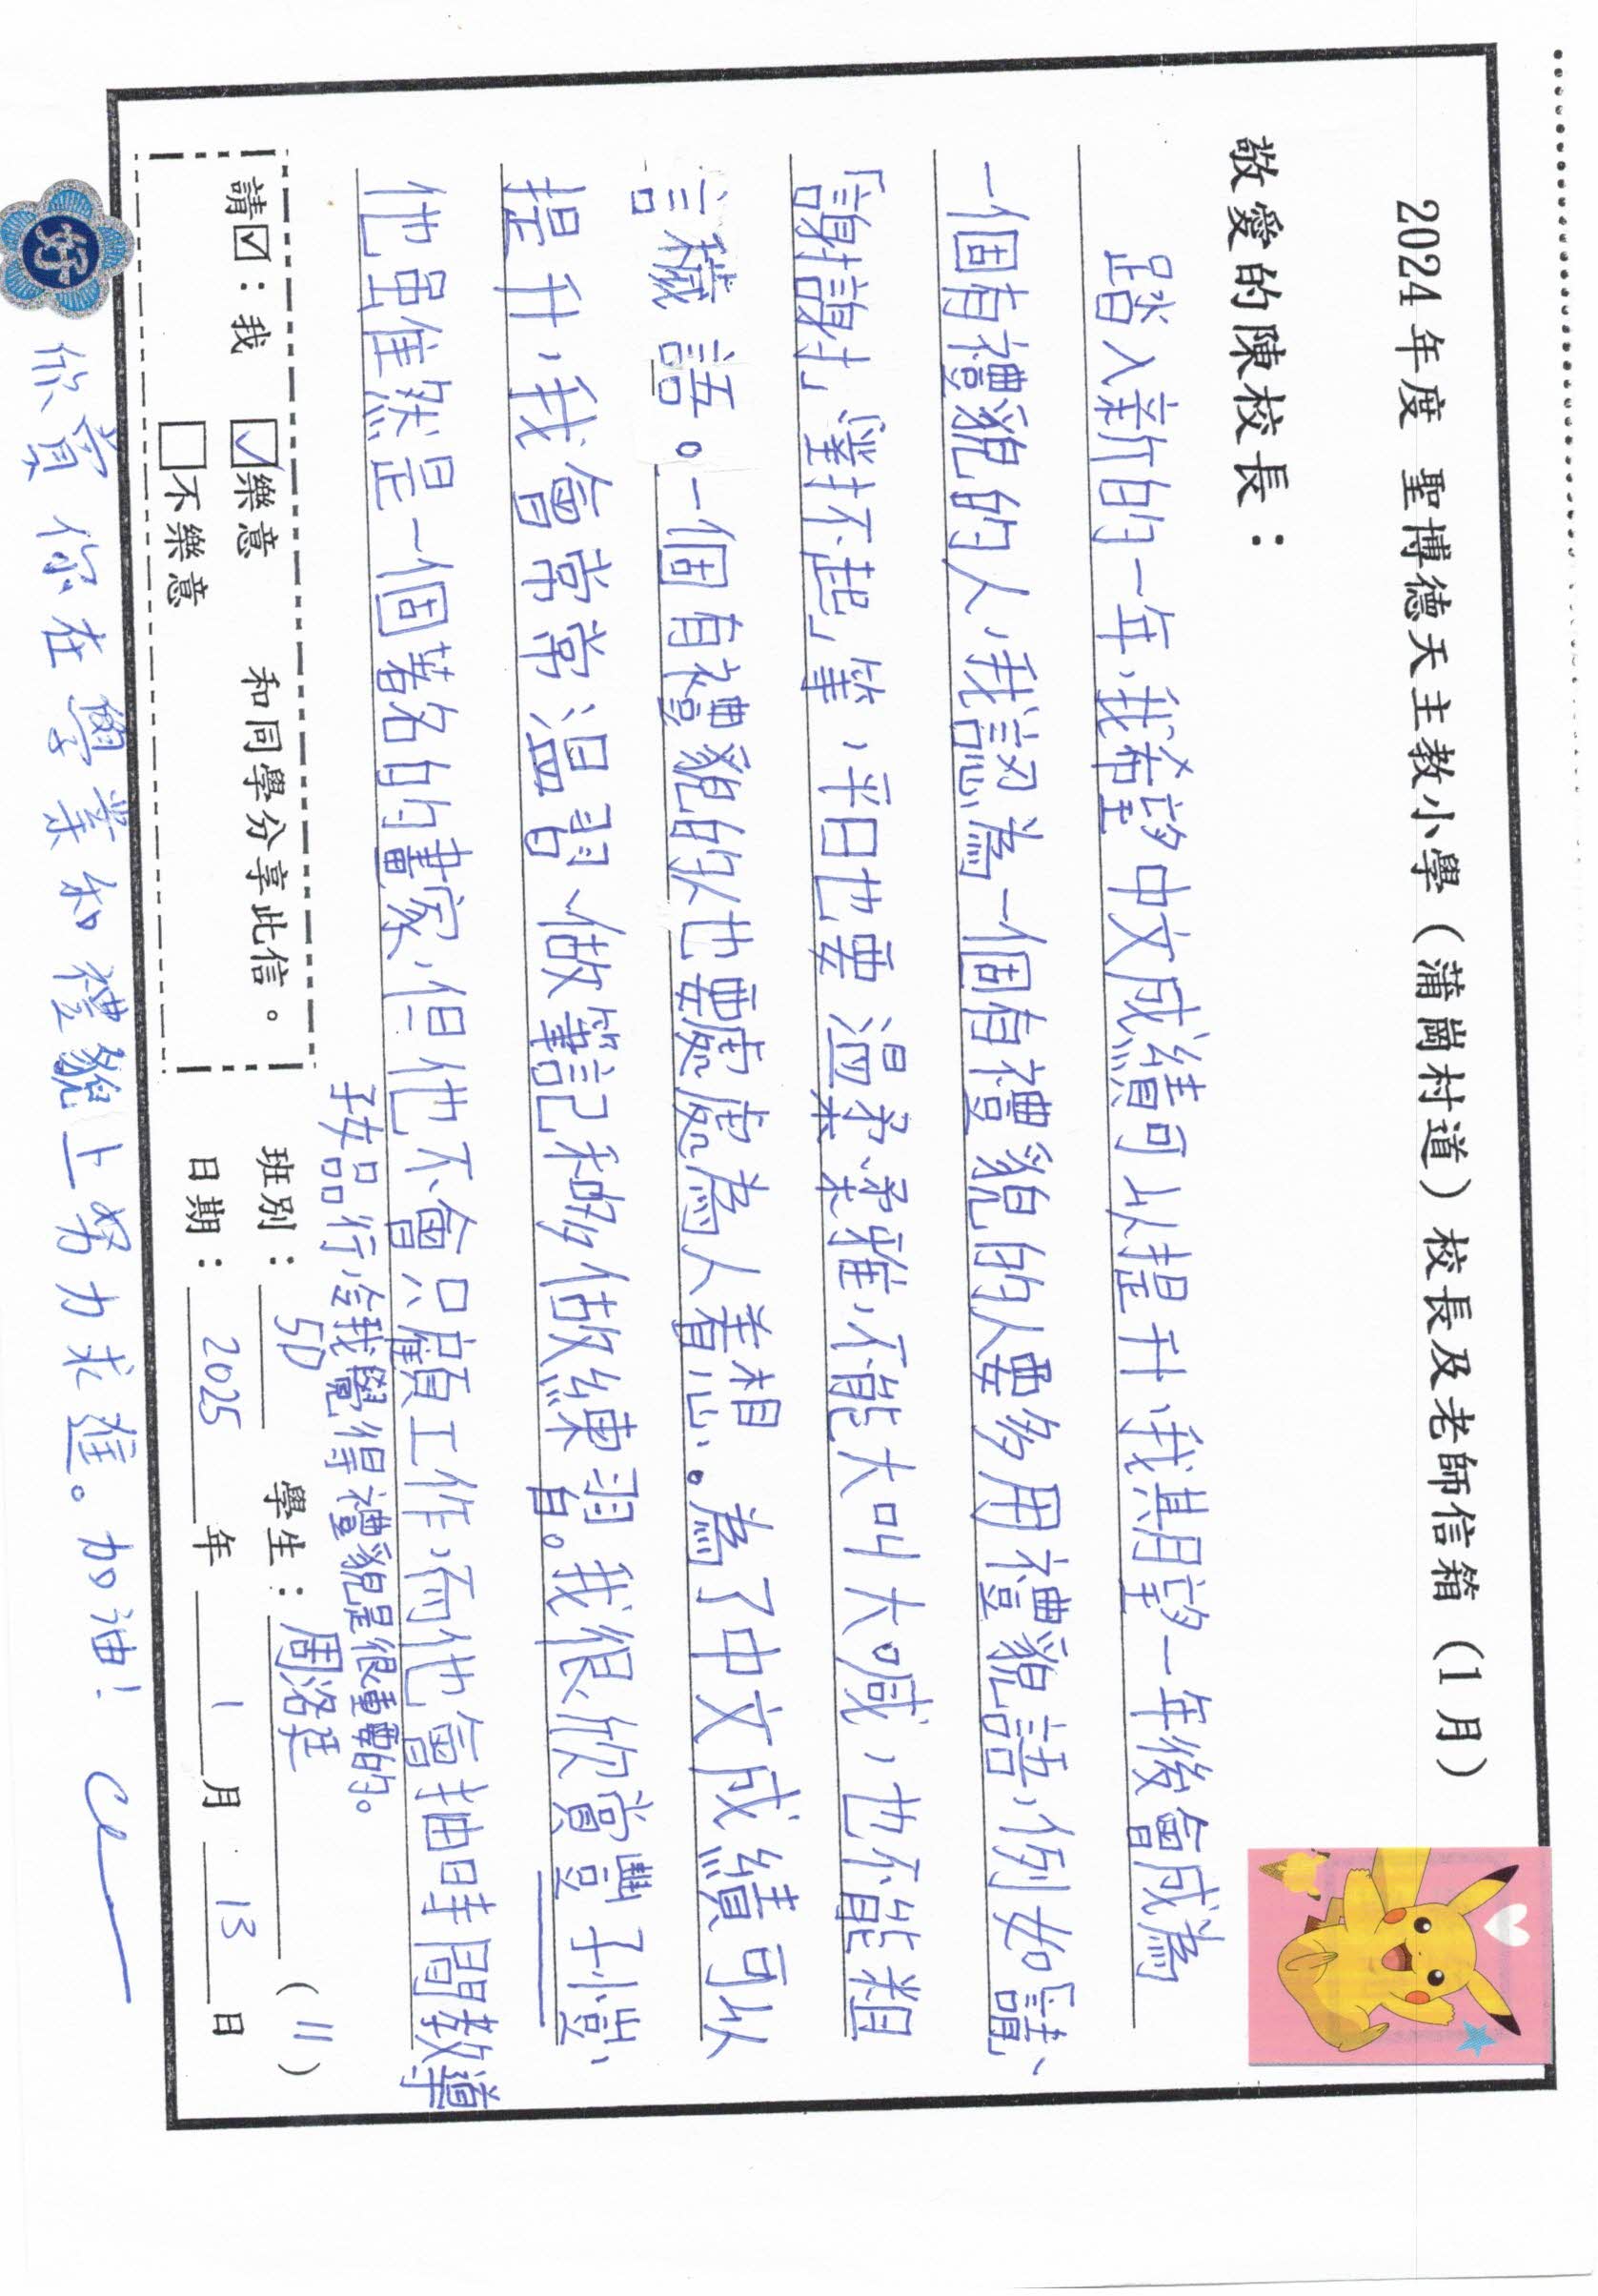 2024年度 聖博德天主教小學（蒲崗村道）校長及老師信箱（1月）
敬愛的陳校長：
踏入新的一年，我希望中文成績可以提升，我期望一年後會成為
一個有禮貌的人，我認為一個有禮貌的人要多用禮貌語，例如「請」、
「謝謝」、「對不起」等，平日也要溫柔柔雅，不能大叫大喊，也不能粗
言穢語。一個有禮貌的人也要處處為人着想。為了中文成績可以
提升，我會常常溫習、做筆記和多做練習。我很欣賞豐子愷，
他虽然是一個著名的畫家，但他不會只顧工作，而他會抽時間教導
孩子品行，令我覺得禮貌是很重要的。
請☑：我 ☑樂意 和同學分享此信。
□不樂意
班別：5D 學生：周洛廷（11）
日期：2025年1月13日
好
欣賞你在學業和禮貌上努力求進。加油！